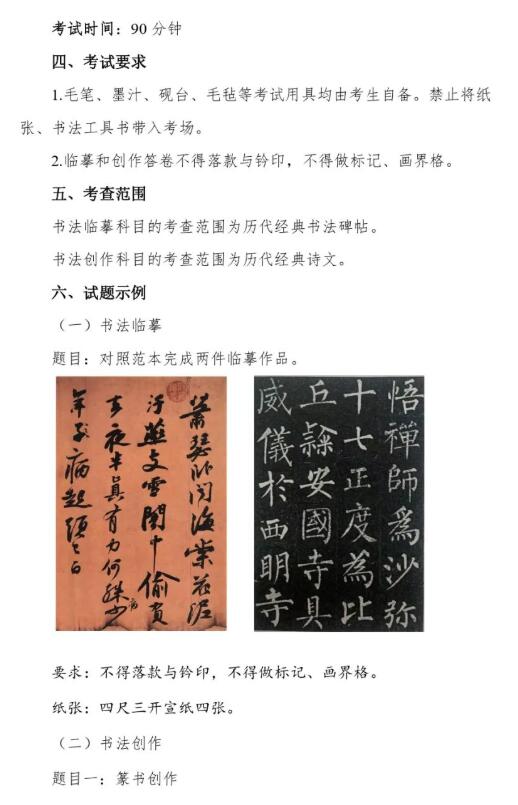 考试时间：90 分钟
四、考试要求
1.毛笔、墨汁、砚台、毛毡等考试用具均由考生自备。禁止将纸
张、书法工具书带入考场。
2.临摹和创作答卷不得落款与钤印，不得做标记、画界格。
五、考查范围
书法临摹科目的考查范围为历代经典书法碑帖。
书法创作科目的考查范围为历代经典诗文。
六、试题示例
（一）书法临摹
题目：对照范本完成两件临摹作品。
萧瑟卧闻海棠花泥
污燕支雪闇中偷负
去夜半真有力何殊少
年子病起头已白
病
悟禅師為沙弥
十七正度為比
丘隸安國寺具
威儀於西明寺
要求：不得落款与钤印，不得做标记、画界格。
纸张：四尺三开宣纸四张。
（二）书法创作
题目一：篆书创作